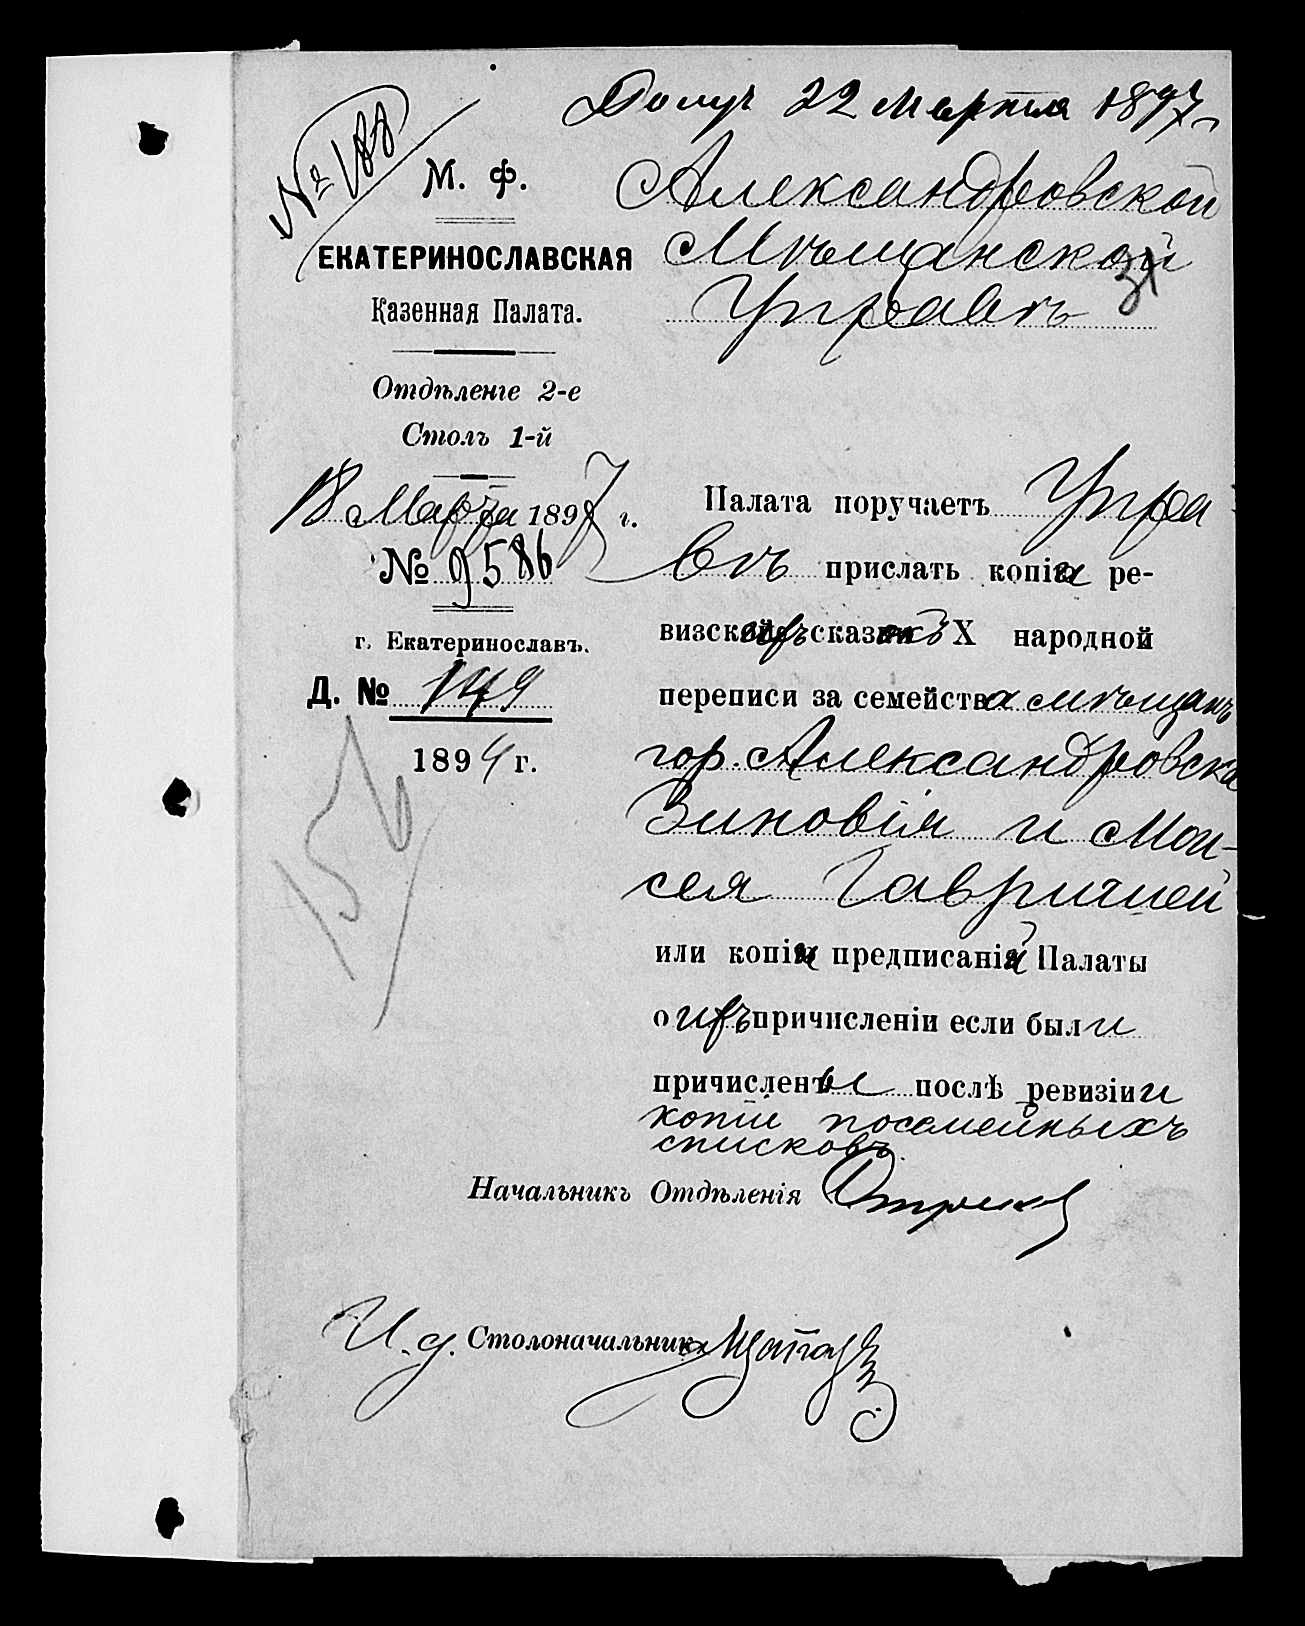 Получ 22 Марта 1897
№ 188
М. Ф.
ЕКАТЕРИНОСЛАВСКАЯ
Казенная Палата.
Отдѣленіе 2-е
Столъ 1-й
18 Марта 1897 г.
№ 9586
г. Екатеринославъ.
Д. № 149
1894 г.
156
Александровской
Мѣщанской
31
Управѣ
Палата поручаетъ Упра
вѣ прислать копіи ре-
визскихъ сказокъ X народной
переписи за семейства мѣщанъ
гор. Александровска
Зиновія и Мои-
сея
или копіи предписаній Палаты
о ихъ причисленіи если были
причислены послѣ ревизіи и
копіи посемейныхъ
списковъ.
Начальникъ Отдѣленія
И. д. Столоначальника